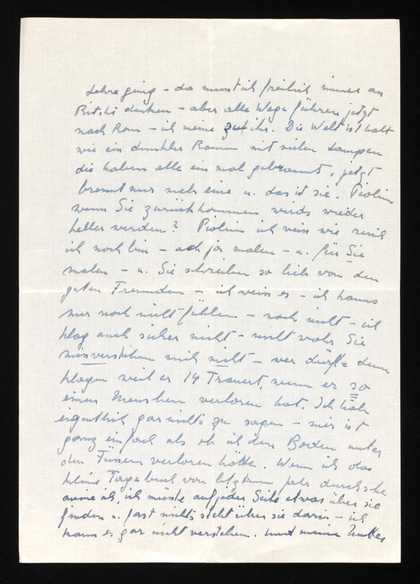 Lehre ging – da musst ich freilich immer an
Bitshi denken – aber alle Wege führen jetzt
nach Rom – ich meine zu ihr. Die Welt ist halt
wie ein dunkler Raum mit vielen Lampen
die haben alle ein mal gebrannt, jetzt
brennt nur mehr eine u. das ist sie.
wenn Sie zurückkommen wirds wieder
heller werden? ich weiss wie
ich noch bin – ach ja malen – u. für Sie
malen – u. Sie schreiben so lieb von den
guten Freunden – ich weiss es – ich kanns
nur noch nicht fühlen – noch nicht – ich
klag auch sicher nicht – nicht wahr Sie
missverstehen mich nicht – wer dürfte denn
klagen weil er trauert, wenn er so
einen Menschen verloren hat. Ich habe
eigentlich gar nichts zu sagen – mir ist
ganz einfach als ob ich den Boden unter
den Füssen verloren hätte. Wenn ich das
kleine Tagebuch vom letzten Jahr durchsehe
meine ich, ich müsste auf jeder Seite etwas über sie
finden u. fast nichts steht über sie darin – ich
kann es gar nicht verstehen. Und meine Mutter